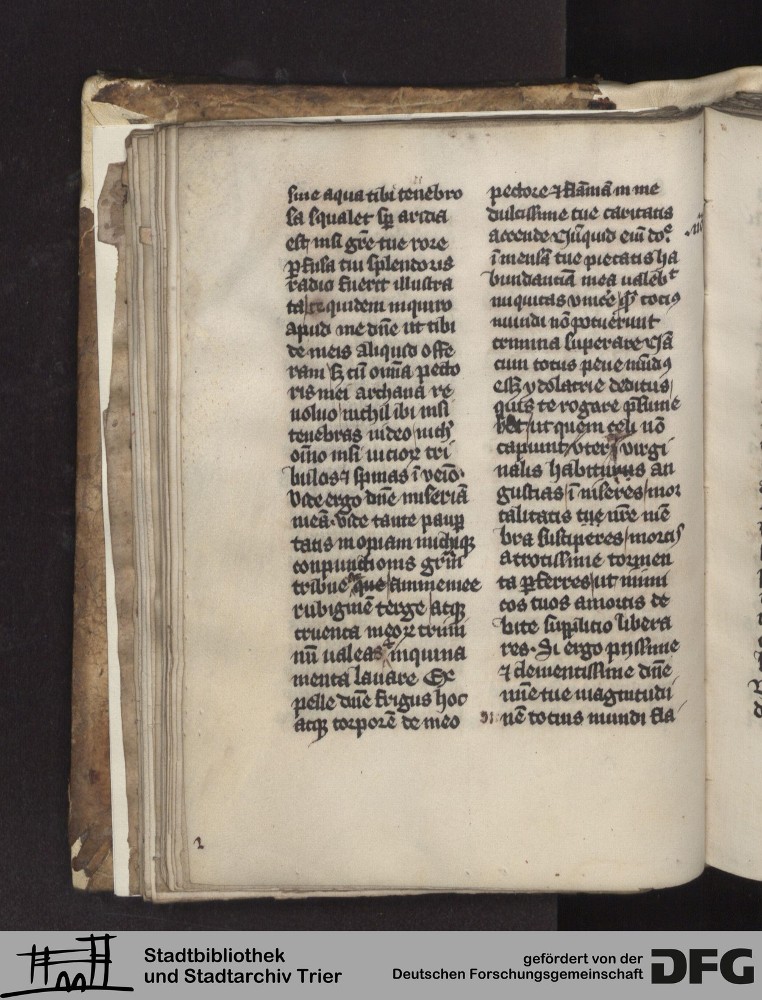 sine aqua tibi tenebro
sa squalet sp̄ arida
est nisi gr̄e tue rore
ꝑfusa tui splendoris
radio fuerit illustra
ta quidem inquiro
apud me dn̄e ut tibi
de meis aliquid offe
ram sꝫ cū om̄ia pecto
ris mei archana re
uoluo nichil ibi nisi
tenebras uideo nich
om̄o nisi uicioꝝ tri
bulos ⁊ spinas ī veīo
Vide ergo dn̄e miseriā
meā vide tante pauꝑ
tatis inopiam michiqꝫ
conpunctionis gr̄m
tribue
rubiginē terge atqꝫ
cruenta meoꝝ crimi
nū ualeas inquina
menta lauare Ex
pelle dn̄e frigus hoc
atqꝫ torporē de meo
pectore ⁊ flāmā in me
dulcissime tue caritatis
accende Nūquid eim
īmensā tue pietatis ha
bundantiā mea ualebt
iniquitas vincē qͥ totiꝰ
mundi nō potuerunt
crimina superare Nā
cum totus pene mūdꝰ
eēt ydolatrie deditus
quis te rogare p̄sume
ret ut quem celi nō
capiunt vteri virgi
nalis habiturus an
gustias ī miseres mor
talitatis tue nr̄e mē
bra susciperes mortis
atrocissime tormen
ta ꝑferres ut inimi
cos tuos a mortis de
bite supplicio libera
res. Si ergo pijssime
⁊ clementissime dn̄e
īmēse tue magnitudi
nē totius mundi fla
Stadtbibliothek
und Stadtarchiv Trier
gefördert von der
Deutschen Forschungsgemeinschaft
DFG